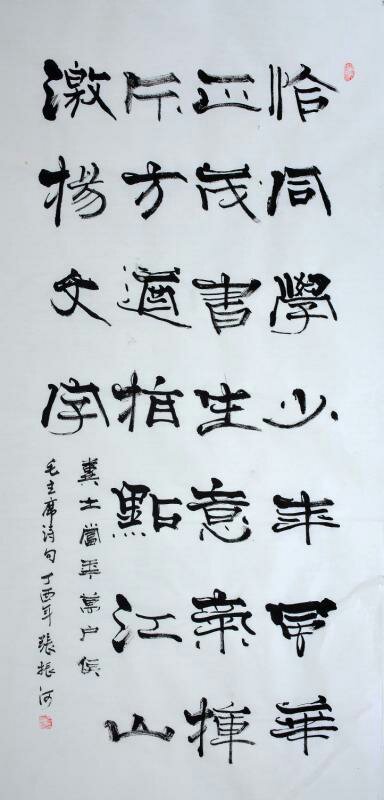 恰同學少年風華
正茂書生意氣揮
斥方遒指點江山
激楊文字
糞土當年萬户侯
毛主席诗句丁酉年張振河